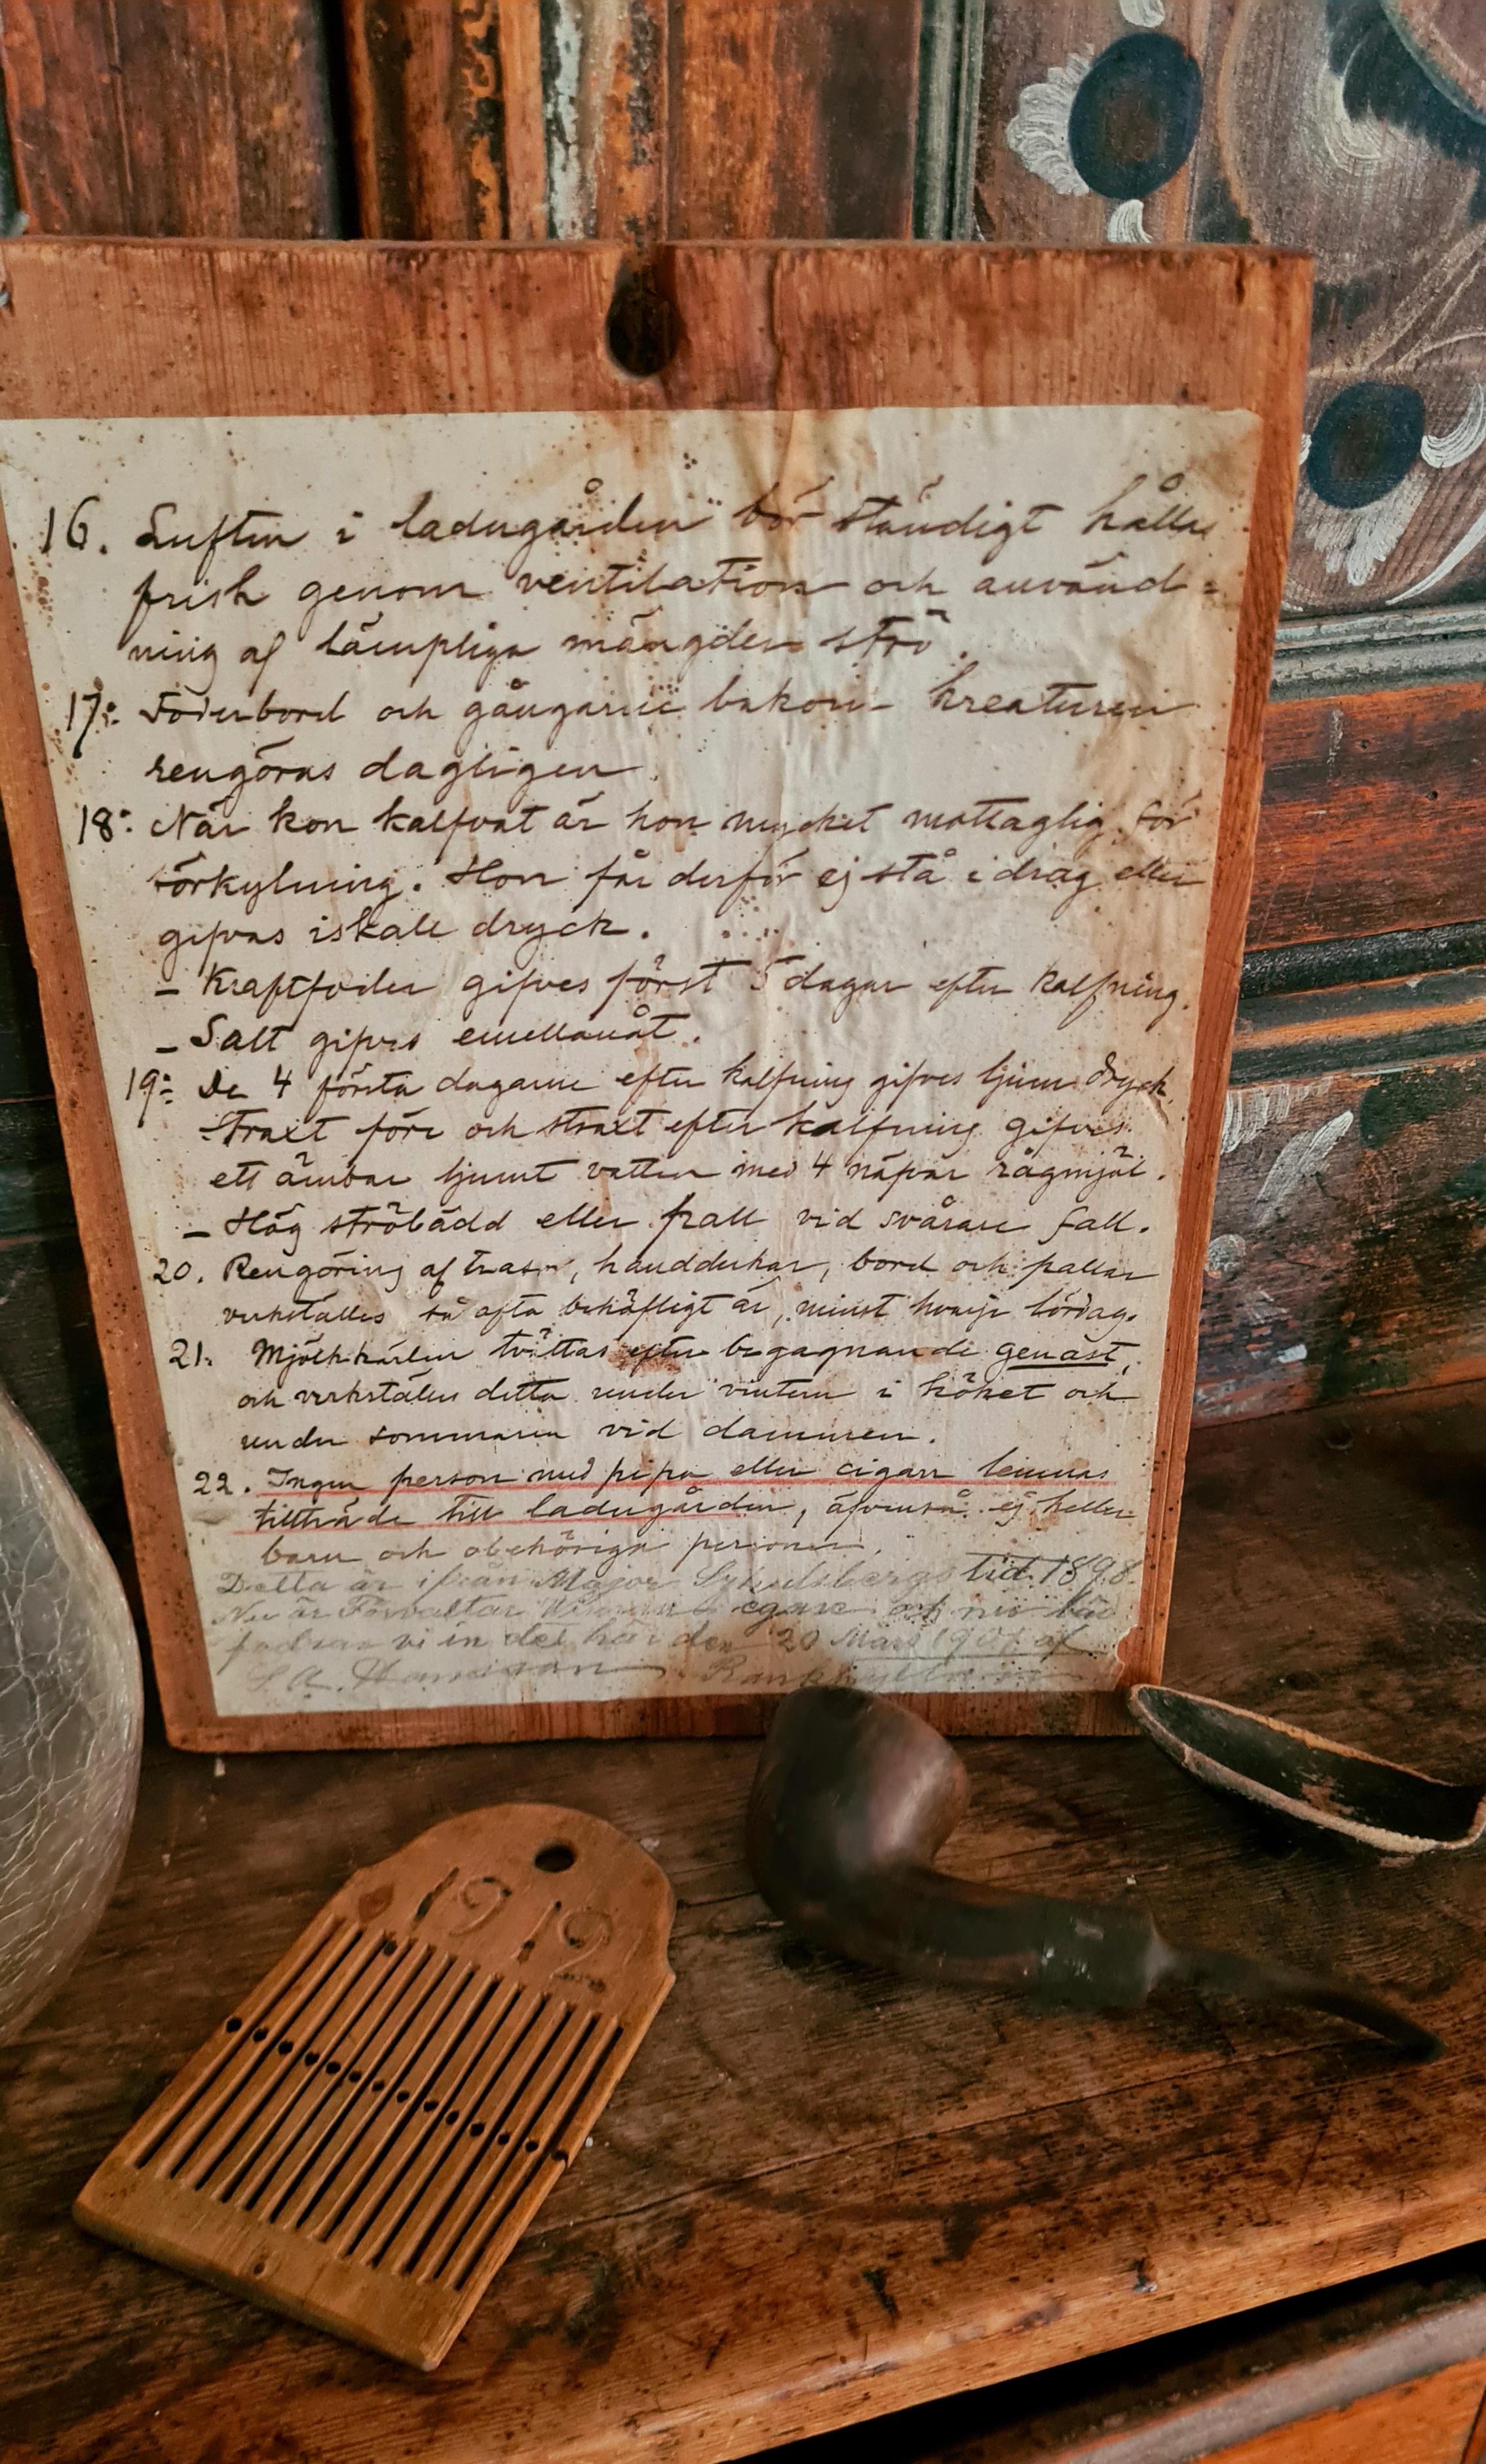 16. Luften i ladugården bör ständigt hållas
frisk genom ventilation och använd=
ning af lämpliga mängder strö.
17: Foderbord och gångarne bakom kreaturen
rengöras dagligen.
18: När kon kalfvat är hon mycket mottaglig för
förkylning. Hon får derför ej stå i drag eller
gifvas iskall dryck.
– Kraftfoder gifves först 5 dagar efter kalfning.
– Salt gifves emellanåt.
19: De 4 första dagarne efter kalfning gifves ljum dryck.
Straxt före och straxt efter kalfning gifves
ett ämbar ljumt vatten med 4 näfvar rågmjöl.
– Hög ströbädd eller pall vid svårare fall.
20. Rengöring af trasor, handdukar, bord och pallar
verkställes så ofta behöfligt är, minst hvarje lördag.
21. Mjölkkärlen tvättas efter begagnande genast,
och verkställes detta under vintern i köket och
under sommaren vid dammen.
22. Ingen person med pipa eller cigarr lemnas
tillträde till ladugården, äfvenså ej heller
barn och obehöriga personer.
Detta är ifrån Major tid 1898.
Nu är Förvaltar egare och nu
vi in det här den 20 Mars af
S. A.
1912